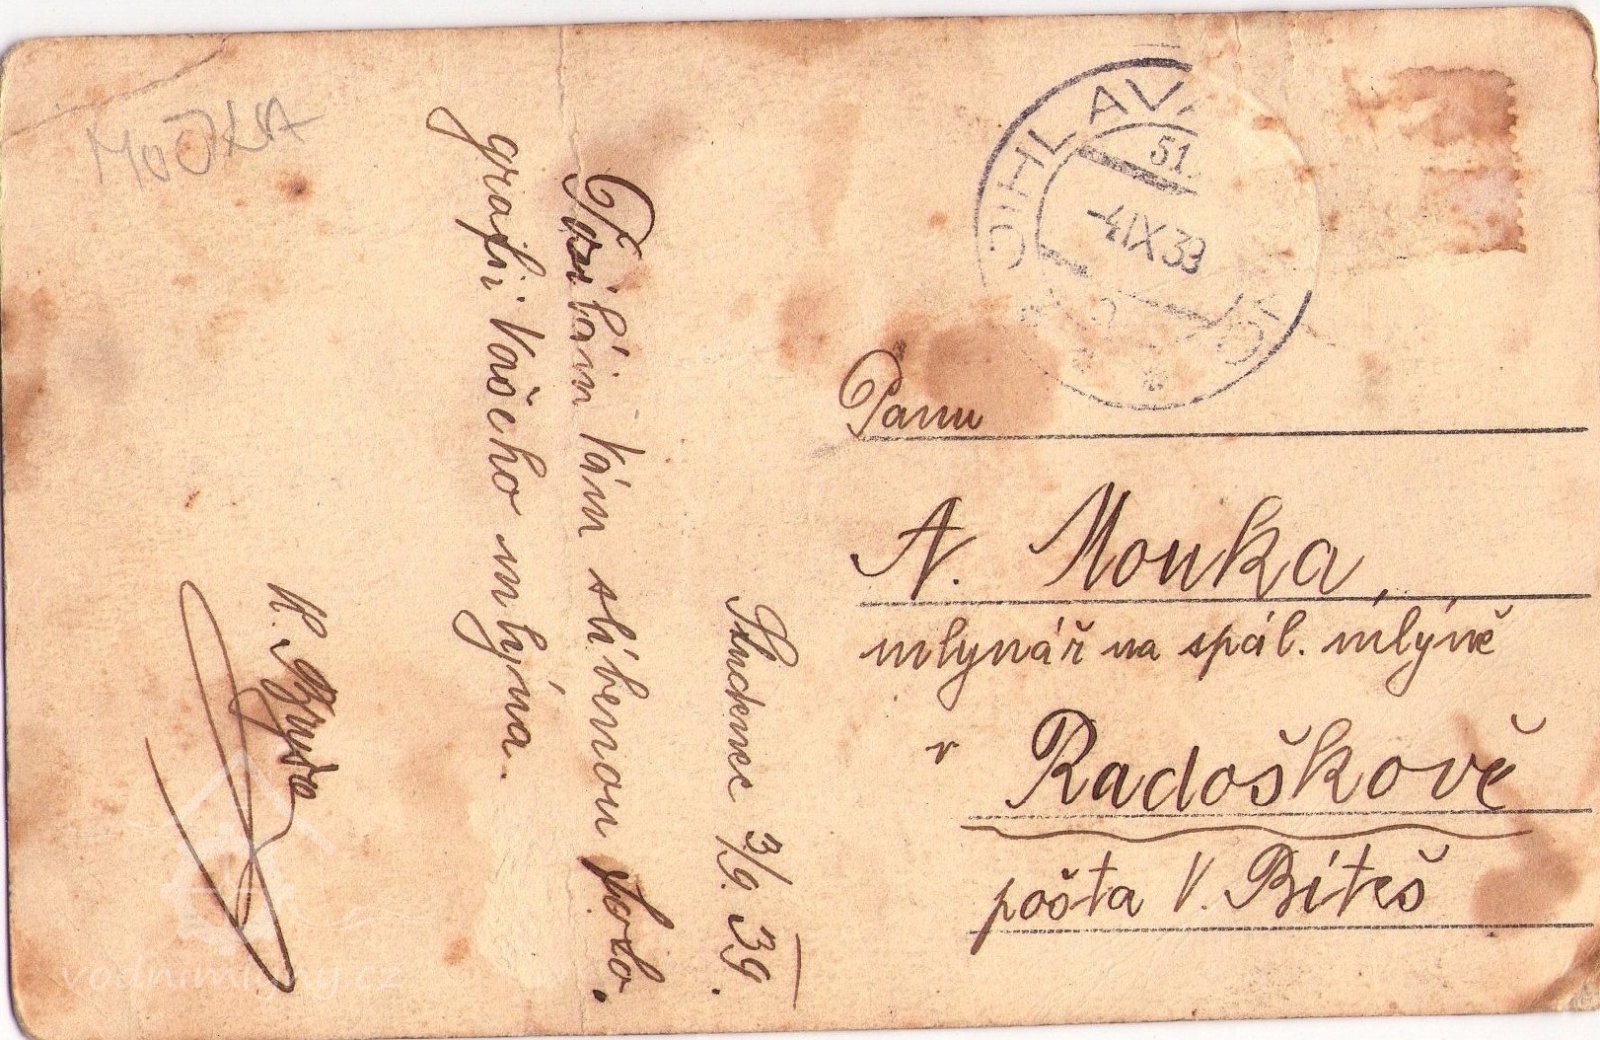 MOUKA
Studenec 3/9. 39.
Posílám Vám slíbenou foto-
grafii Vašeho mlýna.
K.
JIHLAVA
51
-4.IX.39
Panu
A. Mouka,
mlynář na spál. mlýně
v Radoškově
pošta V. Bíteš
vodnimlyny.cz